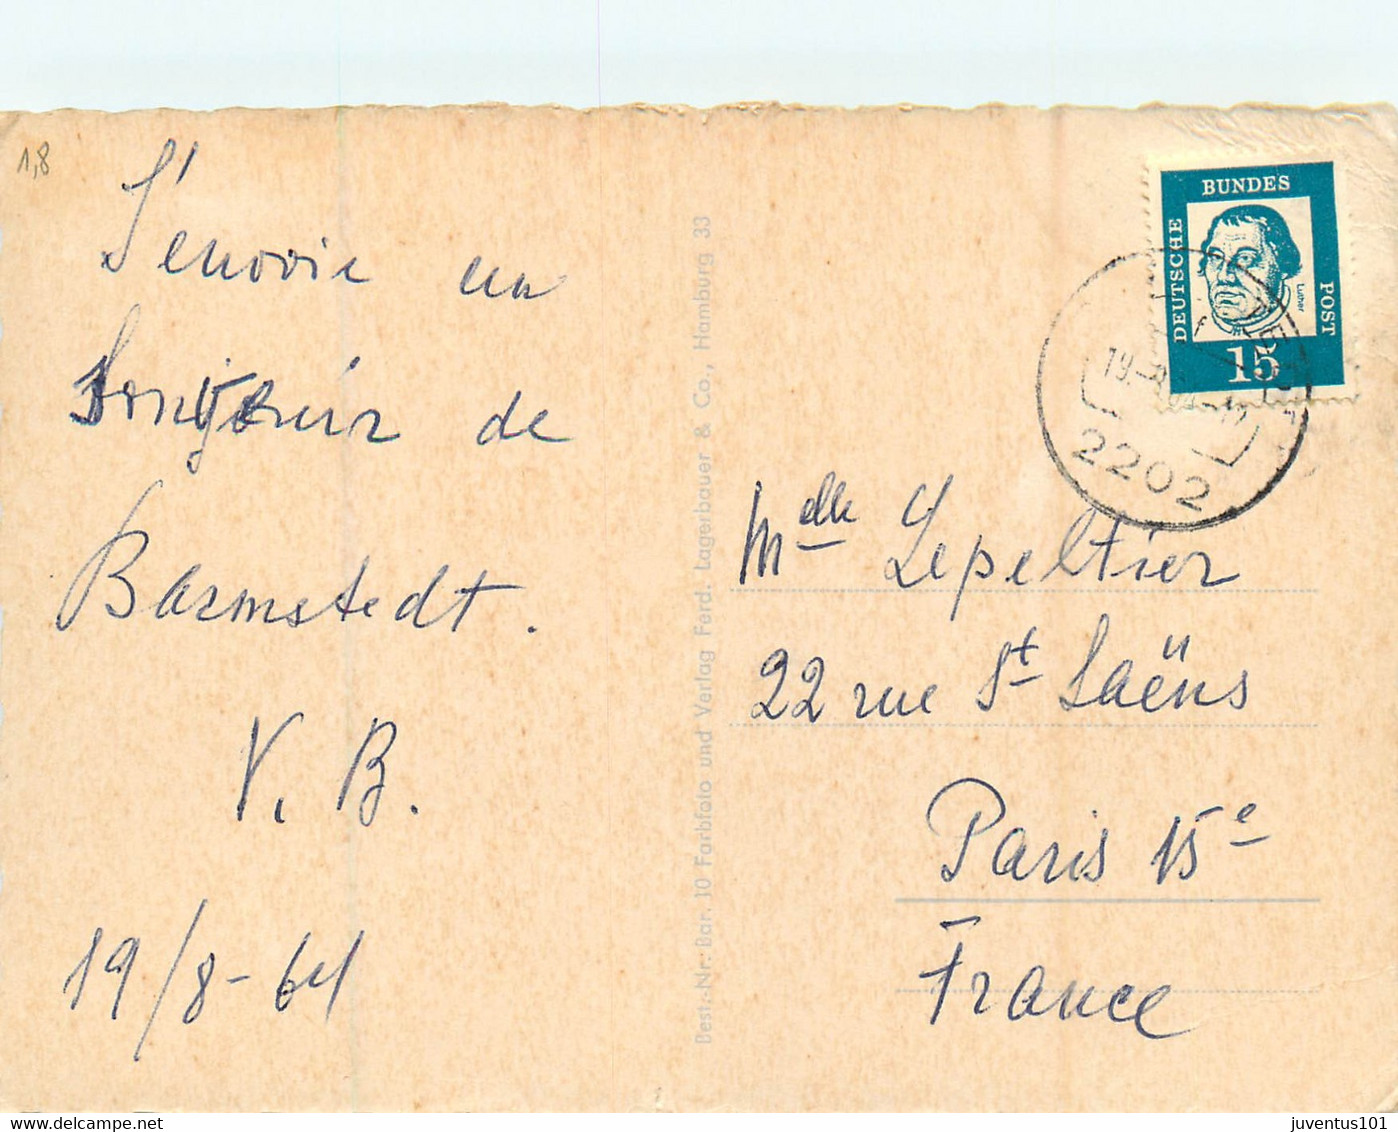 1,8
J'envoie un
bonjour de
Barmstedt.
V. B.
19/8-64
Best.-Nr.: Bar. 10 Farbfoto und Verlag Ferd. Lagerbauer & Co., Hamburg 33
DEUTSCHE
BUNDES
POST
Luther
15
2202
Melle Lepeltier
22 rue St Saëns
Paris 15e
France
delcampe.net
juventus101